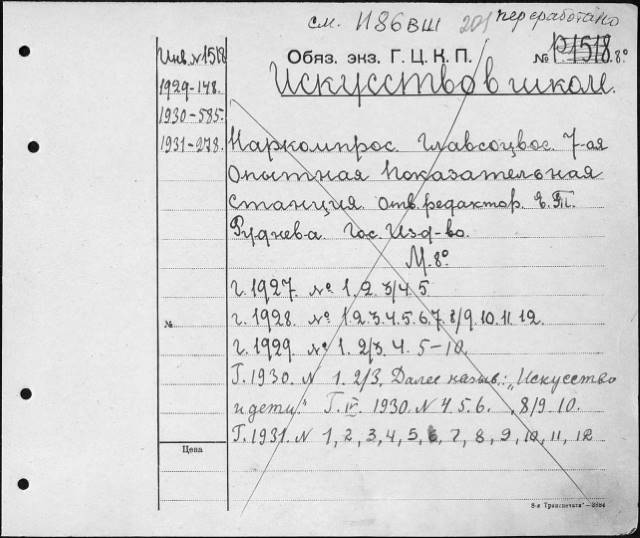 см. И86ВШ 201 переработано
Инв. N 1518
Обяз. экз. Г. Ц. К. П. № Р.1518. 8°
1929-148. Искусство в школе.
1930-585.
1931-278. Наркомпрос. Главсоцвос. 7-ая
опытная показательная
станция. отв. редактор.
Руднева. Гос. Изд-во.
М. 8°
г. 1927. № 1. 2. 3/4. 5
№ г. 1928. № 1.2.3.4.5.6.7.8/9.10.11.12.
г. 1929. № 1. 2/3. 4. 5-10.
Г. 1930. N 1. 2/3. Далее назыв.: „Искусство
и дети." Г. IV. 1930. N 4. 5. 6. , 8/9-10.
Г. 1931. N 1, 2, 3, 4, 5, 6, 7, 8, 9, 10, 11, 12
Цена
8-я Транспечати"—3884